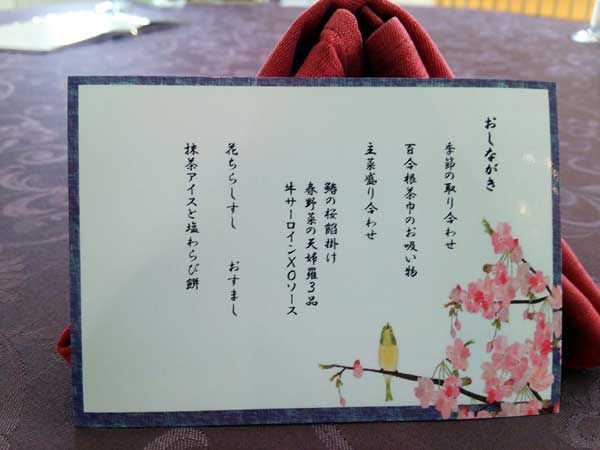 おしながき
季節の取り合わせ
百合根茶巾のお吸い物
主菜盛り合わせ
鰆の桜餡掛け
春野菜の天婦羅3品
牛サーロインXOソース
花ちらしすし　おすまし
抹茶アイスと塩わらび餅